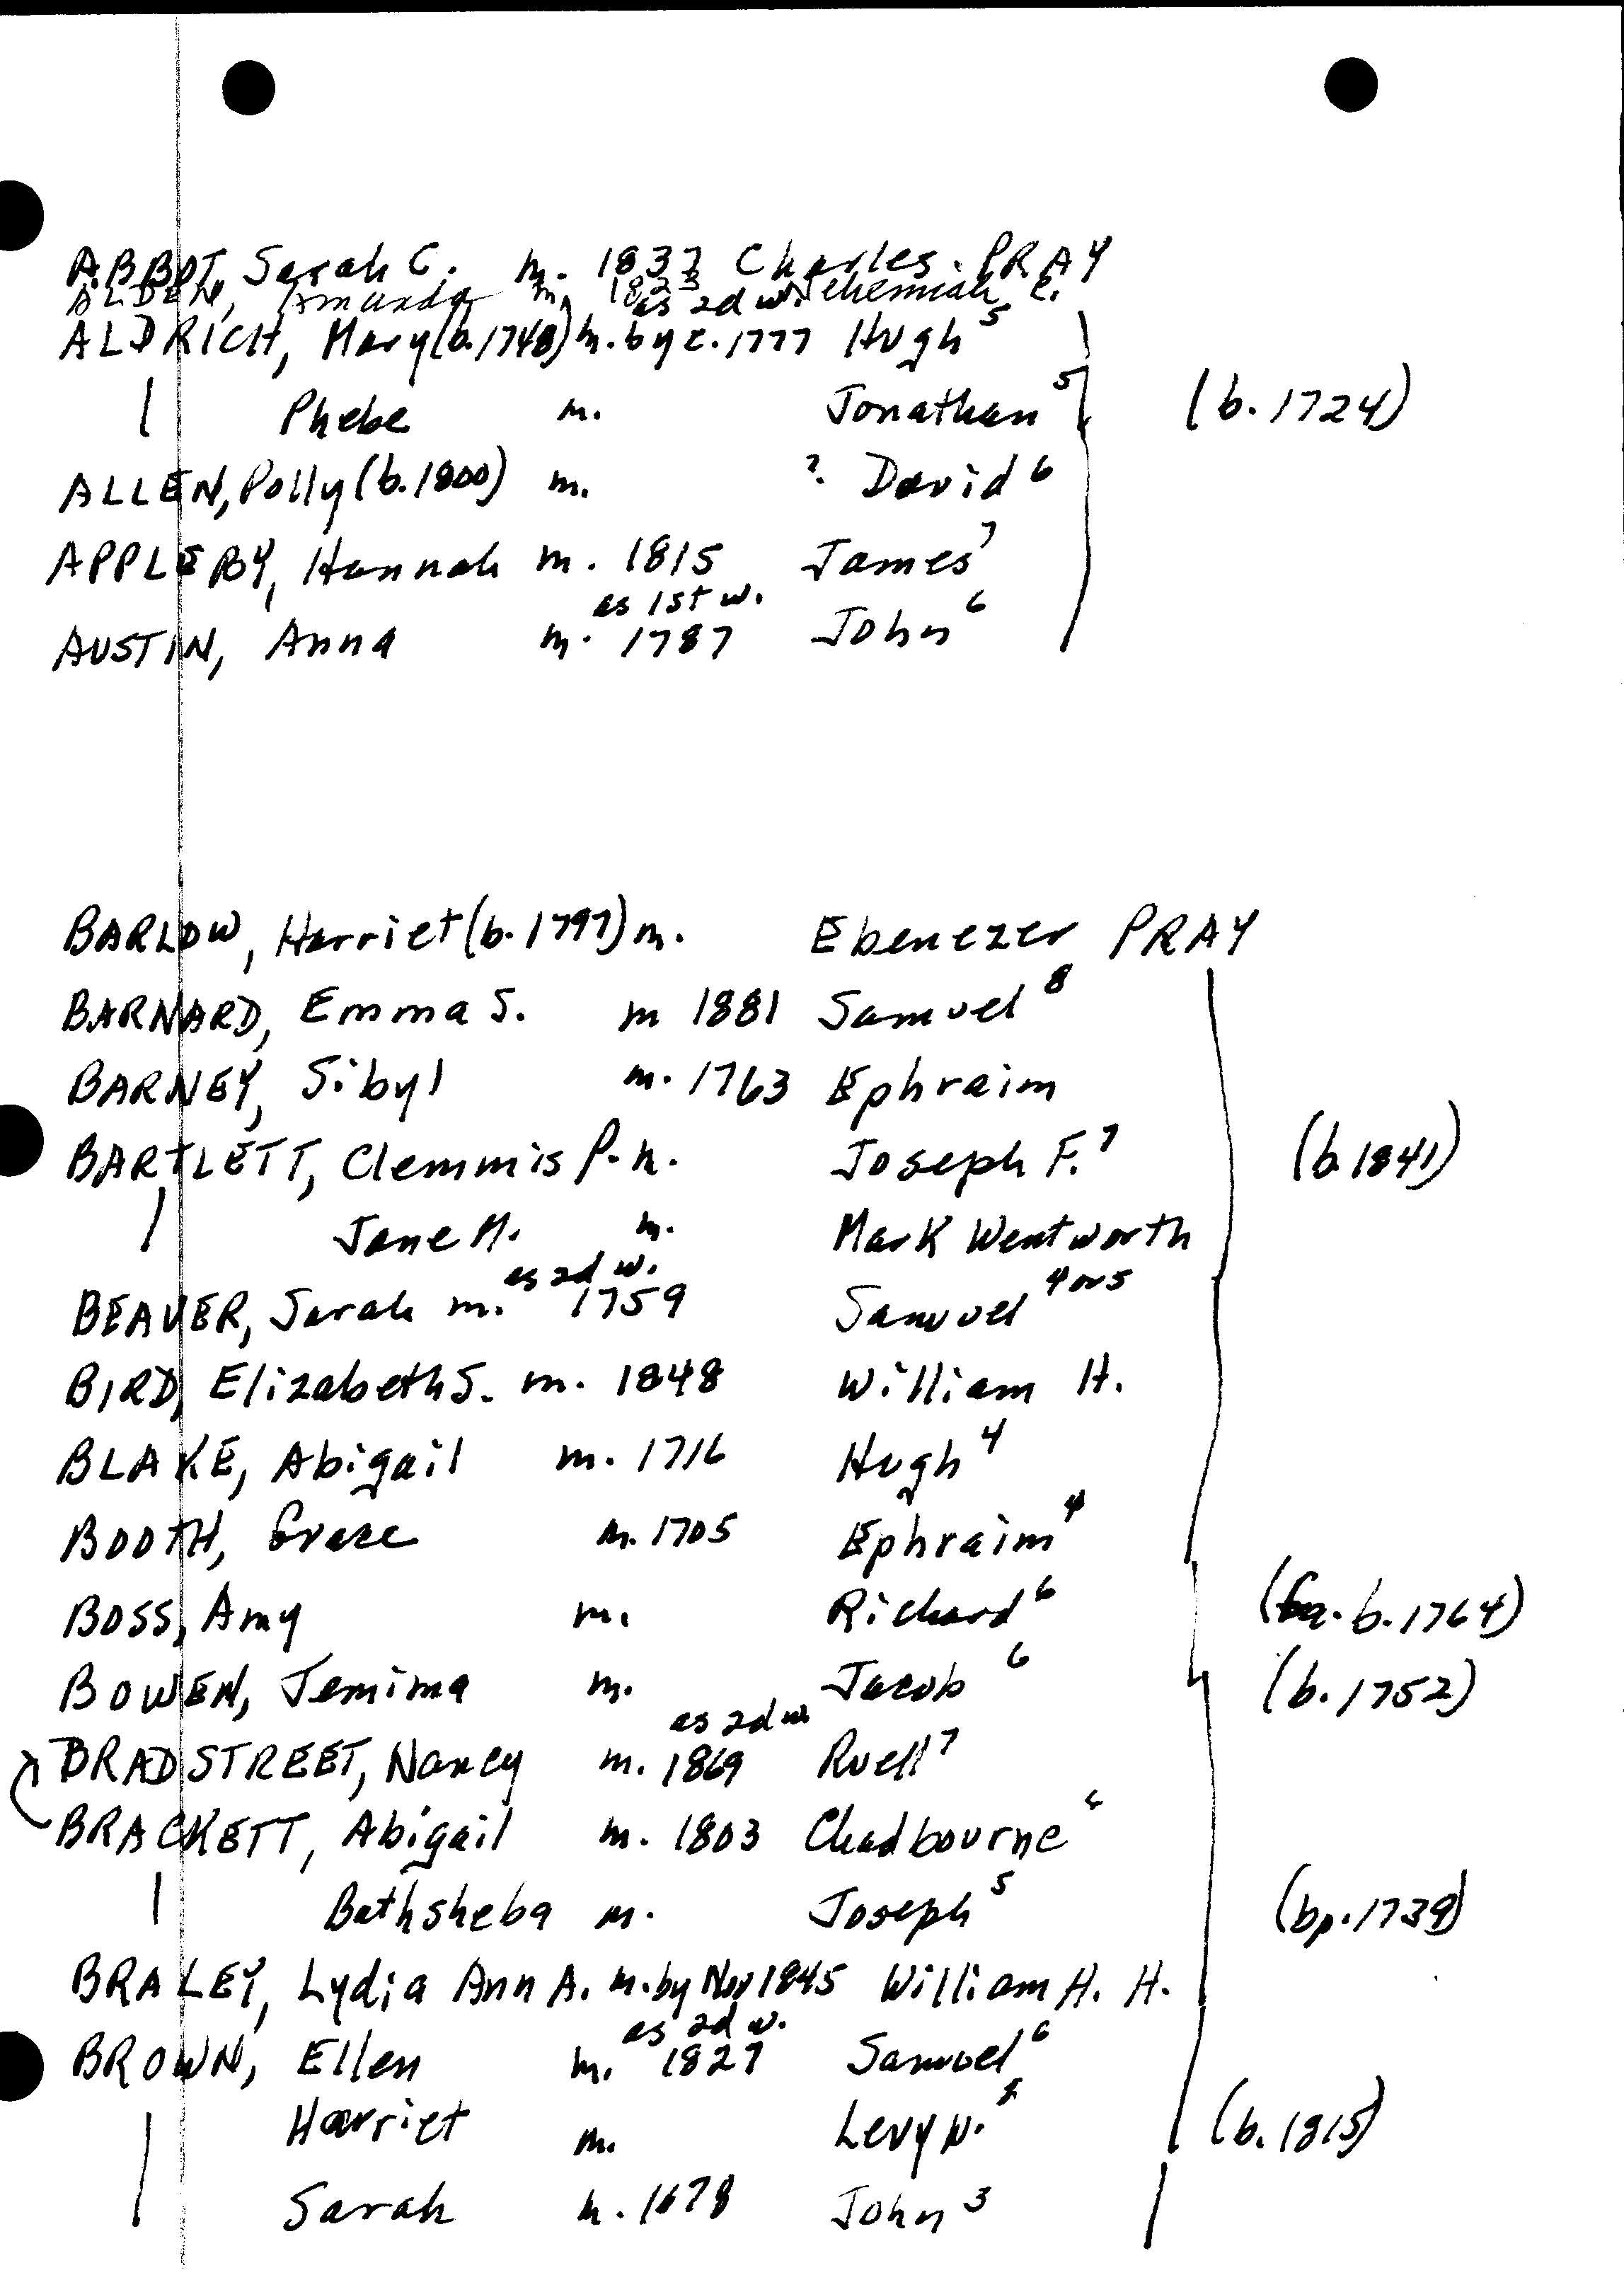 ABBOT, Sarah C. m. 1837 Charles PRAY
ALDEN, Amanda m. 1823 as 2d w. Nehemiah C.
ALDRICH, Mary (b. 1748) m. by c. 1777 Hugh 5
Phebe m. Jonathan 5 (b. 1724)
ALLEN, Polly (b. 1800) m. ? David 6
APPLEBY, Hannah m. 1815 James 7
as 1st w.
AUSTIN, Anna m. 1787 John 6
BARLOW, Harriet (b. 1797) m. Ebenezer PRAY
BARNARD, Emma S. m 1881 Samuel 8
BARNEY, Sibyl m. 1763 Ephraim
BARTLETT, Clemmis P. m. Joseph F. 7 (b 1841)
Jane M. m. Mark Wentworth
as 2d w.
BEAVER, Sarah m. 1759 Samuel 4 or 5
BIRD, Elizabeth S. m. 1848 William H.
BLAKE, Abigail m. 1716 Hugh 4
BOOTH, Grace m. 1705 Ephraim 4
BOSS, Amy m. Richard 6 (b. 1764)
BOWEN, Jemima m. Jacob 6 (b. 1752)
as 2d w
BRADSTREET, Nancy m. 1869 Ruell 7
BRACKETT, Abigail m. 1803 Chadbourne 6
Bathsheba m. Joseph 5 (bp. 1739)
BRALEY, Lydia Ann A. m. by Nov 1845 William H. H.
as 2d w.
BROWN, Ellen m. 1827 Samuel 6
Harriet m. Levy N. (b. 1815)
Sarah m. 1678 John 3